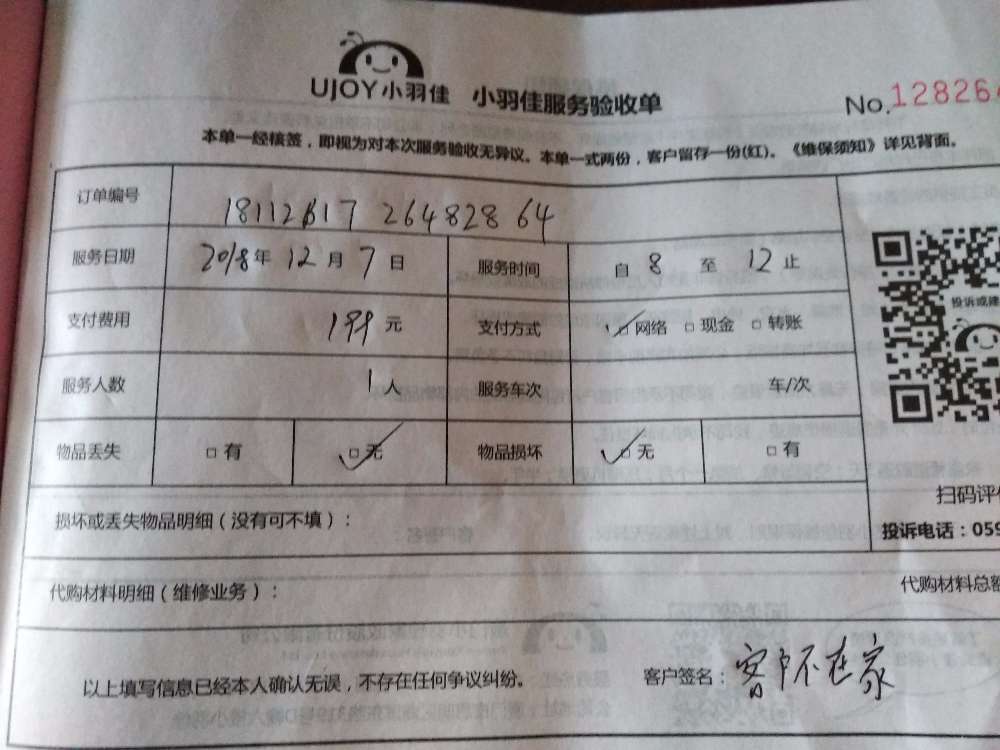 UJOY小羽佳 小羽佳服务验收单 No.128264
本单一经核签，即视为对本次服务验收无异议。本单一式两份，客户留存一份(红)。《维保须知》详见背面。
订单编号 18112817 264828 64
服务日期 2018年 12 月 7 日 服务时间 自 8 至 12 止
支付费用 199 元 支付方式 □网络 □现金 □转账
服务人数 1 人 服务车次 车/次
物品丢失 □有 □无 物品损坏 □无 □有
投诉或建
扫码评价
损坏或丢失物品明细（没有可不填）：
投诉电话：059
代购材料明细（维修业务）：
代购材料总额
以上填写信息已经本人确认无误，不存在任何争议纠纷。 客户签名：客户不在家